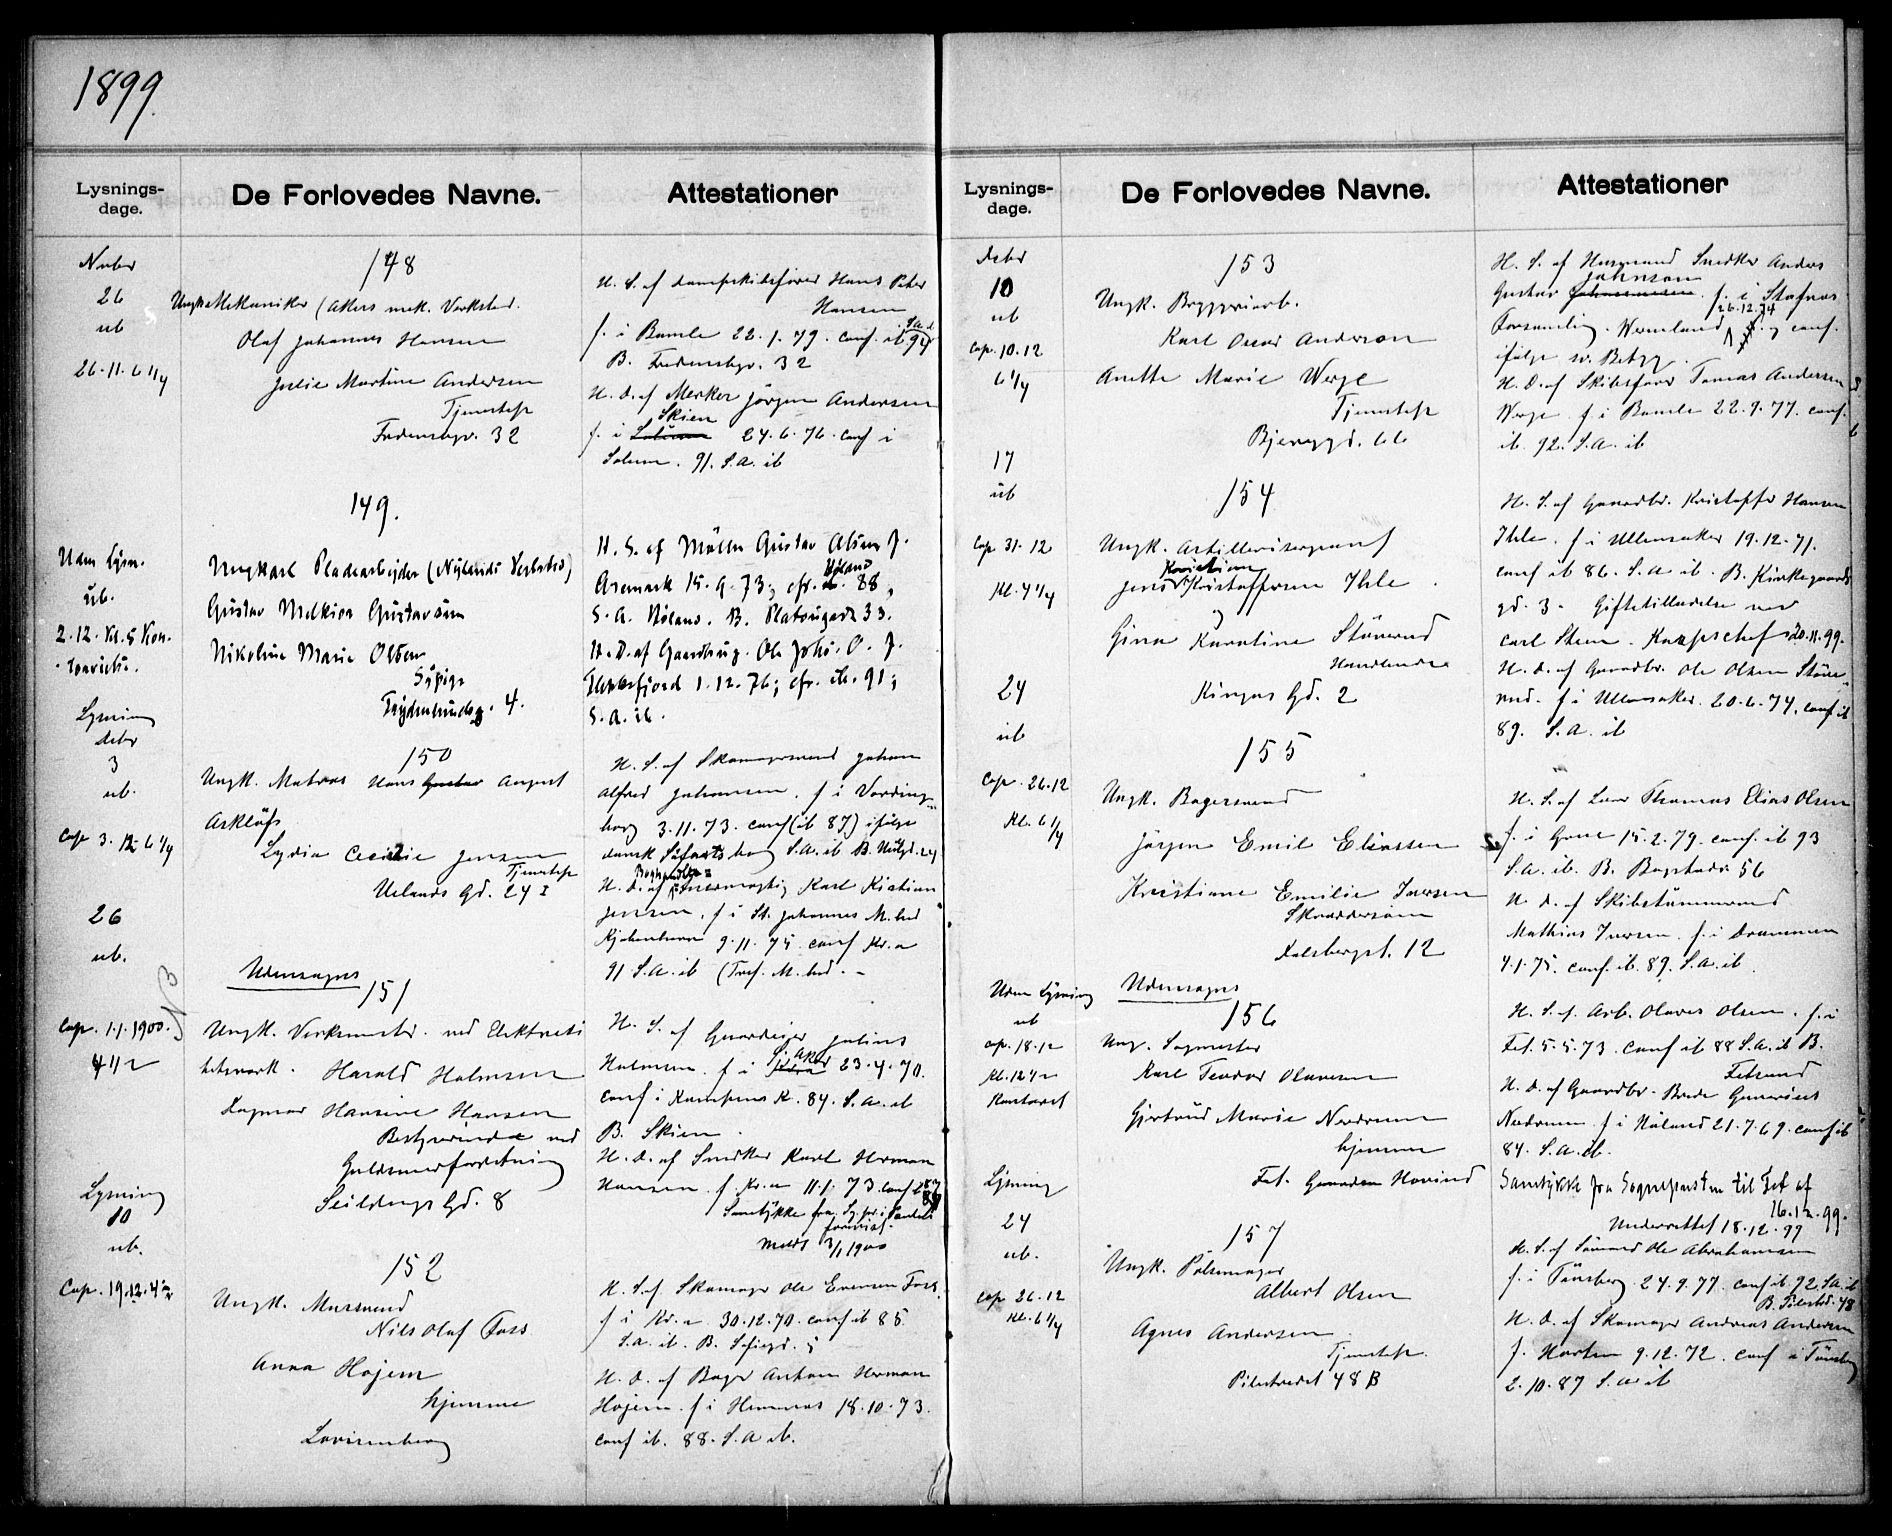 1899.
Lysnings-
dage.
De Forlovedes Navne.
Attestationer
Novbr
26
ub
26.11. 6 1/4
148
Ungk Mekaniker (Akers mek. Verksted.
Olaf Johannes Hansen
Julie Martine Andersen
Tjenestep
Fredensbgv. 32
H. S. af Dampskibsfører Hans Peter
Hansen
f. i Bamle 22.1.79. conf. ib. 94 S.a.d
B. Fredensbgv. 32
H. D. af Mærker Jørgen Andersen
Skien
f. i 24.6.76. conf i
Solum. 91. S.a. ib
Uden Lysn.
ub.
2.12. Kl. 5 Kon-
149.
Ungkarl Pladearbejder (Nylands Verksted)
Gustav Melkior Gustavsen
Nikoline Marie Olsen
Sypige
4.
H. S. af Møller Gustav Olsen f.
Høland
Aremark 15.9.73; cfr. 88,
S. A. Høland. B. Platougade 33.
H. D. af Gaardbrug. Ole Johs. O. f.
1.12.76; cfr. ib. 91;
S. A. ib.
Lysning
Debr
3
ub.
Cap 3.12 6 1/4
150
Ungk. Matros Hans Gustav August
Asklöf
Lydia Cecilie Jensen
Tjenestep
Uelands Gd. 24 I
H. S. af Skomagersvend Johan
Alfred Johansen. f i Vording-
borg 3.11.73. conf (ib 87) ifølge
dansk Søfartsbog S.a. ib B.
H. D. af Karl Kristian
Jensen, f i St. Johannes M.hed
Kjøbenhavn 9.11.75. conf Kr.a
91 S.A. ib (Tref. M.hed. -
26
ub.
Cap. 1.1.1900.
4 1/2
NB
Udensogns
151
Ungk. Verksmester ved Elektrici
tetsverk. Harald Holmsen
Dagmar Hansine Hansen
Bestyrerinde ved
Guldsmedforretning
Seildugs Gd. 8
H. S. af Gaardeier Julius
V. Aker
Holmsen. f i 23.4.70.
conf i Kampens K. 84. S.a. ib
B. Skien.
H. D. af Snedker Karl Herman
Hansen. f. Kr.a 11.1.73. conf
Samtykke fra
Meldt 3/1 1900
Lysning
10
ub.
Cap. 19.12. 4 1/2
152
Ungk. Mursvend
Nils Olaf Foss
Anna Hojem
hjemme
Lovisenberg
H. S. af Skomager Ole Evensen Foss.
f i Kr.a 30.12.70. conf ib 85.
S.a. ib. B. Sofiegd. 5
H. D. af Bager Anton Herman
Hojem. f i Hennes 18.10.73.
conf ib. 88. S.a ib.
Lysnings-
dage.
De Forlovedes Navne.
Attestationer
Debr
10
ub
Cap. 10.12
6 1/4
153
Ungk. Bryggeriarb.
Karl Oscar Anderson
Anette Marie Werge
Tjenestep
Bjerregd. 66
H. S. af Husmand Snedker Anders
Johnson
Gustav f. i Stafnas
26.12.74
Forsamling. Wermland og conf.
ifølge sv. Betyg.
H. D. af Skibsfører Tomas Andersen
Werge f. i Bamle 22.9.77. conf.
ib. 92. S.A. ib
17
ub
Cap 31.12
Kl. 4 1/4
154
Ungk. Artillerisergeant
Kristian
Jens Kristoffersen Ihle
og
Gina Karoline Stömnerud
Handlende
Kingos Gd. 2
H. S. af Gaardbr. Kristoffer Hansen
Ihle. f i Ullensaker 19.12.71.
conf ib 86. S.A ib. B. Kirkegaards
gd. 3. Giftetilladelse ved
Carl Steen. Korpschef 20.11.99.
H. D. af Gaardbr. Ole Olsen
f i Ullensaker. 20.6.74, conf ib
89. S.A. ib
24
ub
Cap. 26.12
Kl. 6 1/4
155
Ungk. Bagersvend
Jörgen Emil Eliassen
Kristiane Emilie Iversen
Skræddersøm
Falsbergst. 12
H. S. af Thomas Elias Olsen
f. i Grue 15.2.79. conf. ib 93
S.a. ib. B. Bogstadv. 56
H. D. af Skibstømmermand
Mathias Iversen. f. i Drammen
4.1.75. conf. ib. 89. S.a. ib
Uden Lysning
ub
Cap. 18.12
Kl. 12 1/2
Kontoret
Udensogns
156
Ung. Sagmester
Karl Teodor Olavesen
Gjertrud Marie Nordrum
hjemme
Fet. Hovind
H. S. af Arb. Olaves Olsen. f. i
Fet. 5.5.73. conf ib 88 S.a. ib B.
Fetsund
H. D. af Gaardbr.
f i Høland 21.7.69. conf ib
84. S.a. ib.
Samtykke fra Sognepresten til Fet af
16.12.99.
Underrettet 18.12.99
Lysning
24
ub.
Cap 26.12
Kl. 6 1/4
157
Ungk. Pølsemager
Albert Olsen
Agnes Andersen
Tjenestep.
Pilestrædet 48 B
H. S. af Sømand Ole Abrahamsen
f. i Tønsberg 24.9.77. conf ib. 92. S.a. ib
B. Pilestd. 48
H. D. af Skomager Andreas Andersen
f. Horten 9.12.72. conf i Tønsberg
2.10.87 S.a. ib